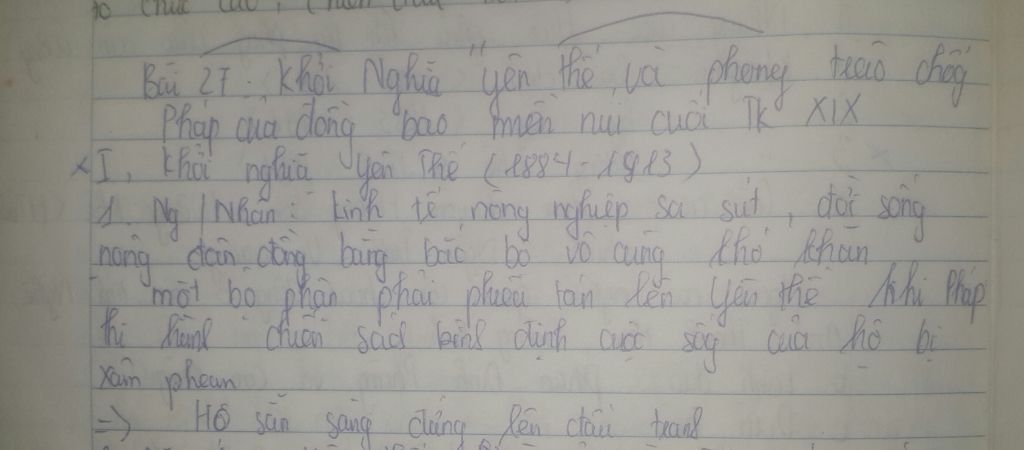 Bài 27: Khởi Nghĩa "yên thế, và phong trào chốg
Pháp của đồng bào miền núi cuối TK XIX
x I, Khởi nghĩa yên Thế (1884-1913)
1. Ng/Nhân: Kinh tế nông nghiệp sa sút, đời sống
nông dân đồng bằng bắc bộ vô cùng khó khăn
- một bộ phận phải phiêu tán lên yên thế khi Pháp
thi hành chính sách bình định cuộc sốg của họ bị
xâm phạm
=> Họ sẵn sàng đứng lên đấu tranh